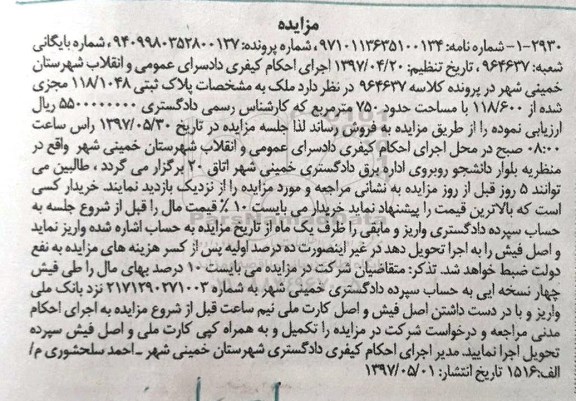 مزایده
۱-۲۹۳۰- شماره نامه: ۹۷۱۰۱۱۳۶۳۵۱۰۰۱۳۴، شماره پرونده: ۹۴۰۹۹۸۰۳۵۲۸۰۰۱۳۷، شماره بایگانی
شعبه: ۹۶۴۶۳۷، تاریخ تنظیم: ۱۳۹۷/۰۴/۲۰ اجرای احکام کیفری دادسرای عمومی و انقلاب شهرستان
خمینی شهر در پرونده کلاسه ۹۶۴۶۳۷ در نظر دارد ملک به مشخصات پلاک ثبتی ۱۱۸/۱۰۴۸ مجزی
شده از ۱۱۸/۶۰۰ با مساحت حدود ۷۵۰ مترمربع که کارشناس رسمی دادگستری ۵۵۰۰۰۰۰۰۰۰ ریال
ارزیابی نموده را از طریق مزایده به فروش رساند لذا جلسه مزایده در تاریخ ۱۳۹۷/۰۵/۳۰ راس ساعت
۰۸:۰۰ صبح در محل اجرای احکام کیفری دادسرای عمومی و انقلاب شهرستان خمینی شهر واقع در
منظریه بلوار دانشجو روبروی اداره برق دادگستری خمینی شهر اتاق ۲۰ برگزار می گردد ، طالبین می
توانند ۵ روز قبل از روز مزایده به نشانی مراجعه و مورد مزایده را از نزدیک بازدید نمایند. خریدار کسی
است که بالاترین قیمت را پیشنهاد نماید خریدار می بایست ۱۰ ٪ قیمت مال را قبل از شروع جلسه به
حساب سپرده دادگستری واریز و مابقی را ظرف یک ماه از تاریخ مزایده به حساب اشاره شده واریز نماید
و اصل فیش را به اجرا تحویل دهد در غیر اینصورت ده درصد اولیه پس از کسر هزینه های مزایده به نفع
دولت ضبط خواهد شد. تذکر: متقاضیان شرکت در مزایده می بایست ۱۰ درصد بهای مال را طی فیش
چهار نسخه ایی به حساب سپرده دادگستری خمینی شهر به شماره ۲۱۷۱۲۹۰۲۷۱۰۰۳ نزد بانک ملی
واریز و با در دست داشتن اصل فیش و اصل کارت ملی نیم ساعت قبل از شروع مزایده به اجرای احکام
مدنی مراجعه و درخواست شرکت در مزایده را تکمیل و به همراه کپی کارت ملی و اصل فیش سپرده
تحویل اجرا نمایید. مدیر اجرای احکام کیفری دادگستری شهرستان خمینی شهر ـ احمد سلحشوری م/
الف:۱۵۱۶ تاریخ انتشار: ۱۳۹۷/۰۵/۰۱